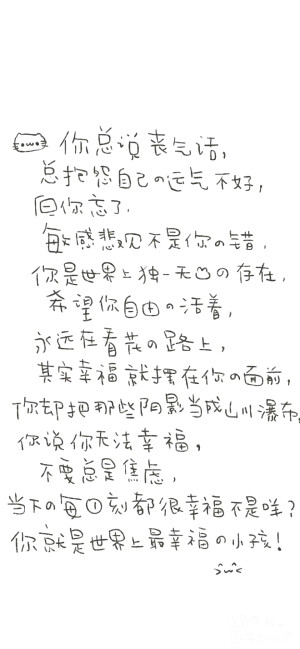 你总说丧气话，
总抱怨自己の运气不好，
但你忘了，
敏感悲观不是你の错，
你是世界上独一无二の存在，
希望你自由の活着，
永远在看花の路上，
其实幸福就摆在你の面前，
你却把那些阴影当成山川瀑布，
你说你无法幸福，
不要总是焦虑，
当下の每时刻都很幸福不是咩？
你就是世界上最幸福の小孩！